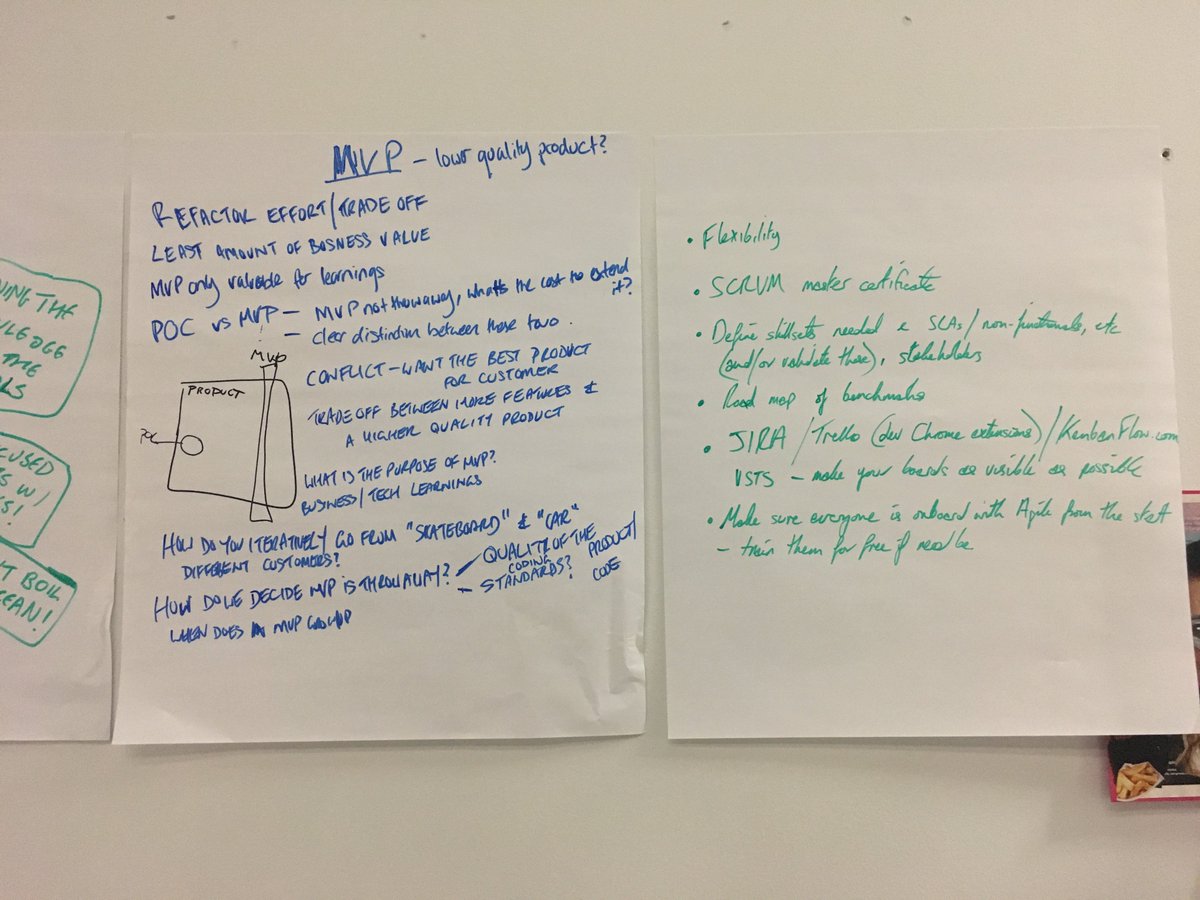 NING THE
LEDGE
THE
LS
CUSED
S W/
S!
T BOIL
CEAN!
MVP – lowr quality product?
REFACTOR EFFORT/TRADE OFF
LEAST AMOUNT OF BUSNESS VALUE
MVP only valuable for learnings
POC vs MVP – MVP not throwaway, what's the cost to extend it?
– clear distinction between these two.
MVP
PRODUCT
POC
CONFLICT – WANT THE BEST PRODUCT
FOR CUSTOMER
TRADE OFF BETWEEN MORE FEATURES &
A HIGHER QUALITY PRODUCT
WHAT IS THE PURPOSE OF MVP?
BUSINESS/TECH LEARNINGS
HOW DO YOU ITERATIVELY GO FROM "SKATEBOARD" & "CAR"
DIFFERENT CUSTOMERS?
HOW DO WE DECIDE MVP IS THROWAWAY?
– QUALITY OF THE PRODUCT/CODE
– CODING STANDARDS?
WHEN DOES MVP
• Flexibility
• SCRUM master certificate
• Define skillsets needed & SLAs/non-functionals, etc
(and/or validate these), stakeholders
• Road map of benchmarks
• JIRA/Trello (dev Chrome extensions)/KanbanFlow.com
VSTS – make your boards as visible as possible
• Make sure everyone is onboard with Agile from the start
– train them for free if need be